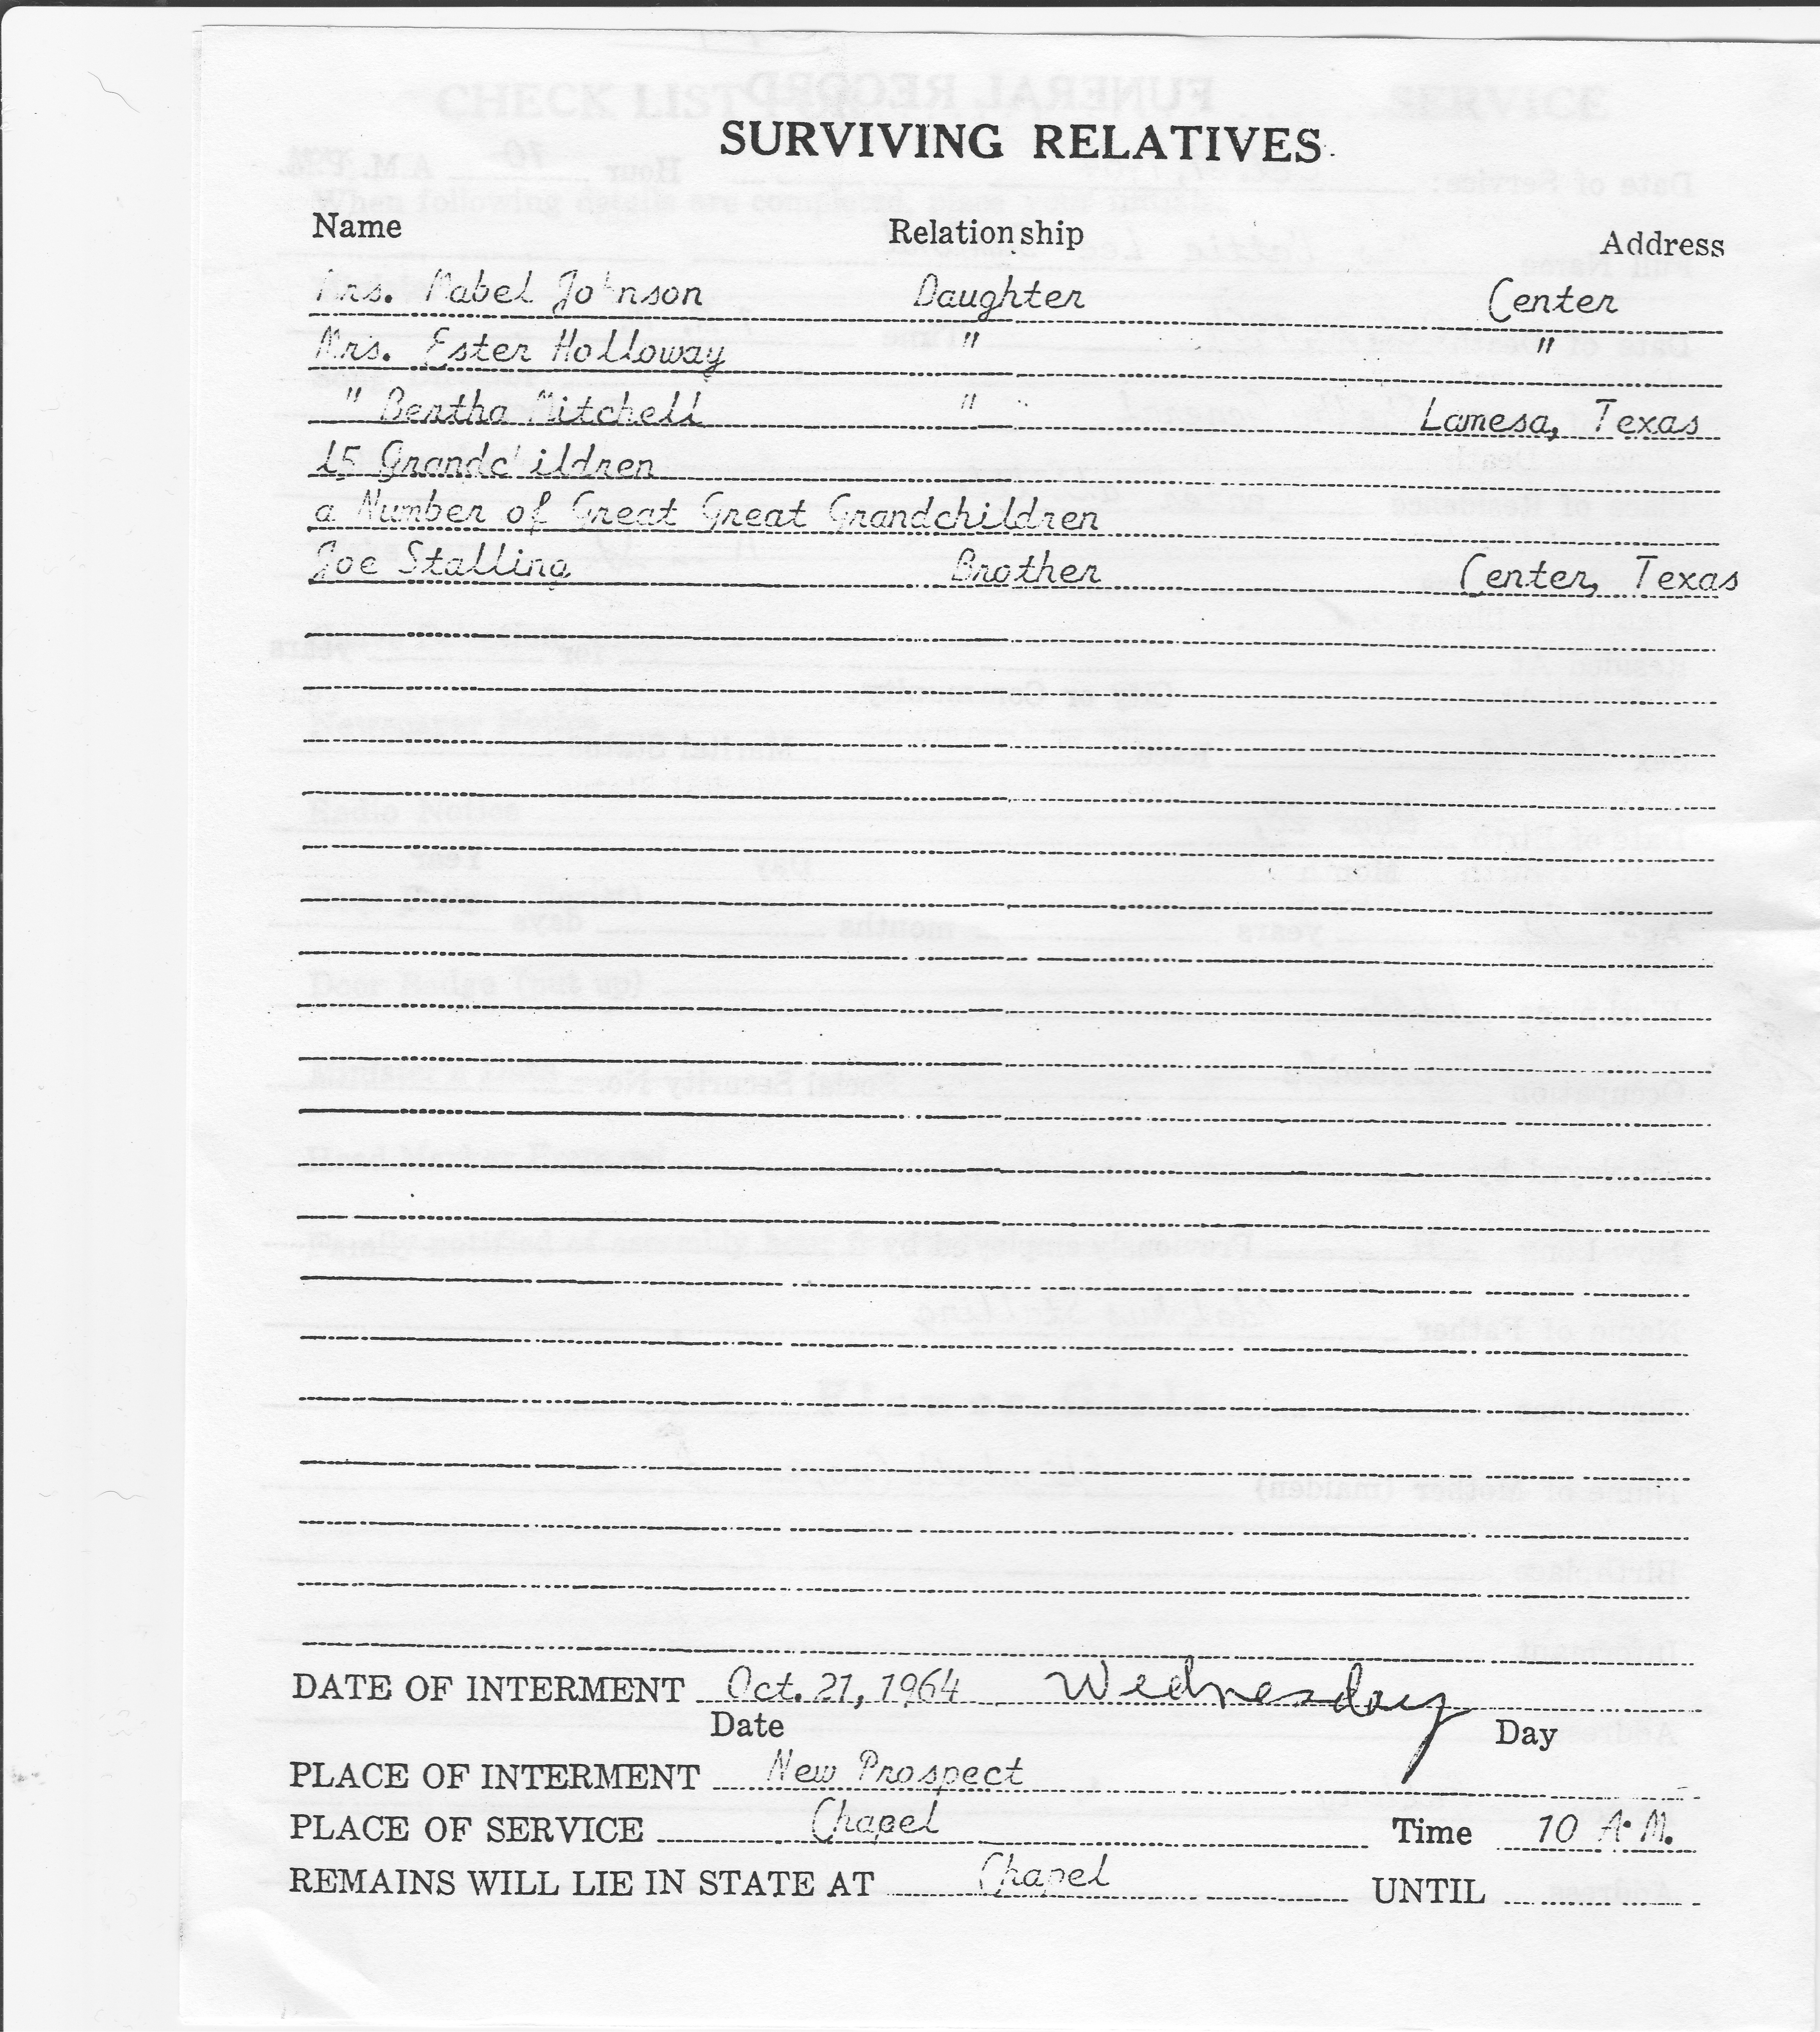 SURVIVING RELATIVES
Name Relationship Address
Mrs. Mabel Johnson Daughter Center
Mrs. Ester Holloway " "
" Bertha Mitchell " Lamesa, Texas
15 Grandchildren
a Number of Great Great Grandchildren
Joe Stalling Brother Center, Texas
DATE OF INTERMENT Oct. 21, 1964 Wednesday
Date Day
PLACE OF INTERMENT New Prospect
PLACE OF SERVICE Chapel Time 10 A.M.
REMAINS WILL LIE IN STATE AT Chapel UNTIL